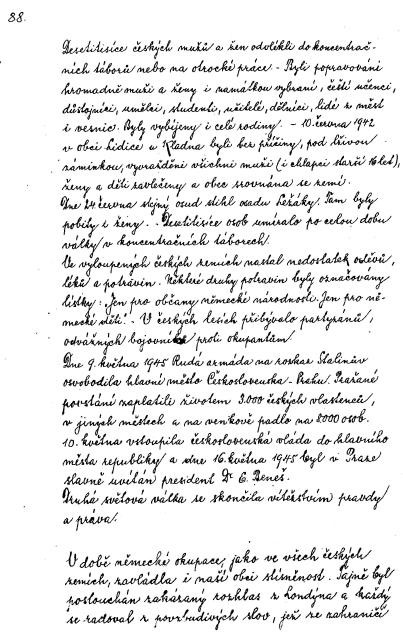 88.
Desetitisíce českých mužů a žen odvlékli do koncentrač-
ních táborů nebo na otrocké práce - Byli popravováni
hromadně muži a ženy i namátkou vybraní, čeští učenci,
důstojníci, umělci, studenti, učitelé, dělníci, lidé z měst
i vesnic. Byly vybíjeny i celé rodiny. - 10. června 1942
v obci Lidice u Kladna byli bez příčiny, pod křivou
záminkou, vyvražděni všichni muži (i chlapci starší 16 let),
ženy a děti zavlečeny a obec srovnána se zemí.
Dne 24 června stejný osud stihl osadu Ležáky. Tam byly
pobity i ženy. - Desetitisíce osob umíralo po celou dobu
války v koncentračních táborech.
Ve vyloupených českých zemích nastal nedostatek oděvů,
léků a potravin. Některé druhy potravin byly označovány
lístky: "Jen pro občany německé národnosti. Jen pro ně-
mecké děti". - V českých lesích přibývalo partyzánů,
odvážných bojovníků proti okupantům.
Dne 9. května 1945 Rudá armáda na rozkaz Stalinův
osvobodila hlavní město Československa - Prahu. Pražané
povstání zaplatili životem 3.000 českých vlastenců,
v jiných městech a na venkově padlo na 8000 osob.
10. května vstoupila československá vláda do hlavního
města republiky a dne 16. května 1945 byl v Praze
slavně uvítán president Dr E. Beneš.
Druhá světová válka se skončila vítězstvím pravdy
a práva.
V době německé okupace, jako ve všech českých
zemích, zavládla i naší obci stísněnost. Tajně byl
poslouchán zakázaný rozhlas z Londýna a každý
se radoval z povzbudivých slov, jež ze zahraničí